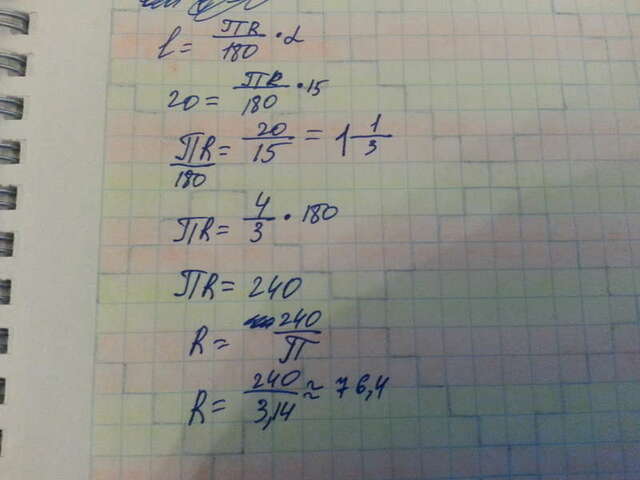 l = ПR/180 · α
20 = ПR/180 · 15
ПR/180 = 20/15 = 1 1/3
ПR = 4/3 · 180
ПR = 240
R = 240/П
R = 240/3,14 ≈ 76,4